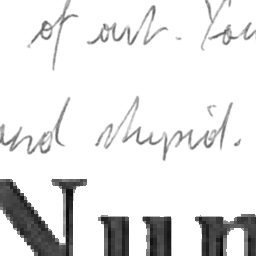 of art. You
and stupid.
Num